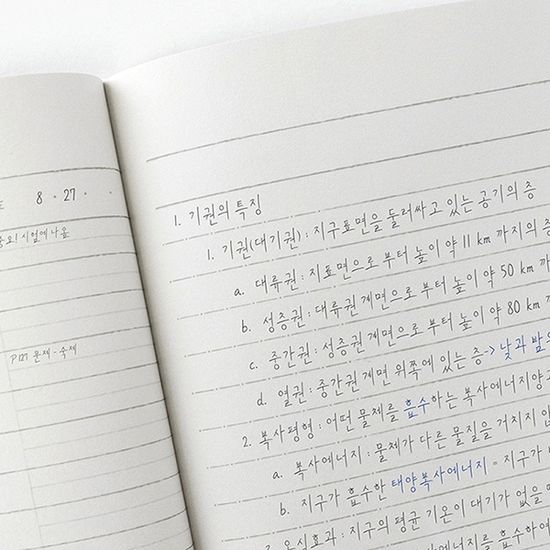 8 · 27 ·
중요! 시험에 나옴
P127 문제 - 숙제
1. 기권의 특징
1. 기권(대기권) : 지구표면을 둘러싸고 있는 공기의 층
a. 대류권 : 지표면으로 부터 높이 약 11 km 까지의
b. 성층권 : 대류권 계면으로 부터 높이 약 50 km
c. 중간권 : 성층권 계면으로 부터 높이 약 80 km
d. 열권 : 중간권 계면 위쪽에 있는 층 -> 낮과 밤
2. 복사평형 : 어떤 물체를 흡수하는 복사에너지양
a. 복사에너지 : 물체가 다른 물질을 거치지
b. 지구가 흡수한 태양복사에너지 = 지구가
3. 온실효과 : 지구의 평균 기온이 대기가 없을
에너지를 흡수하여